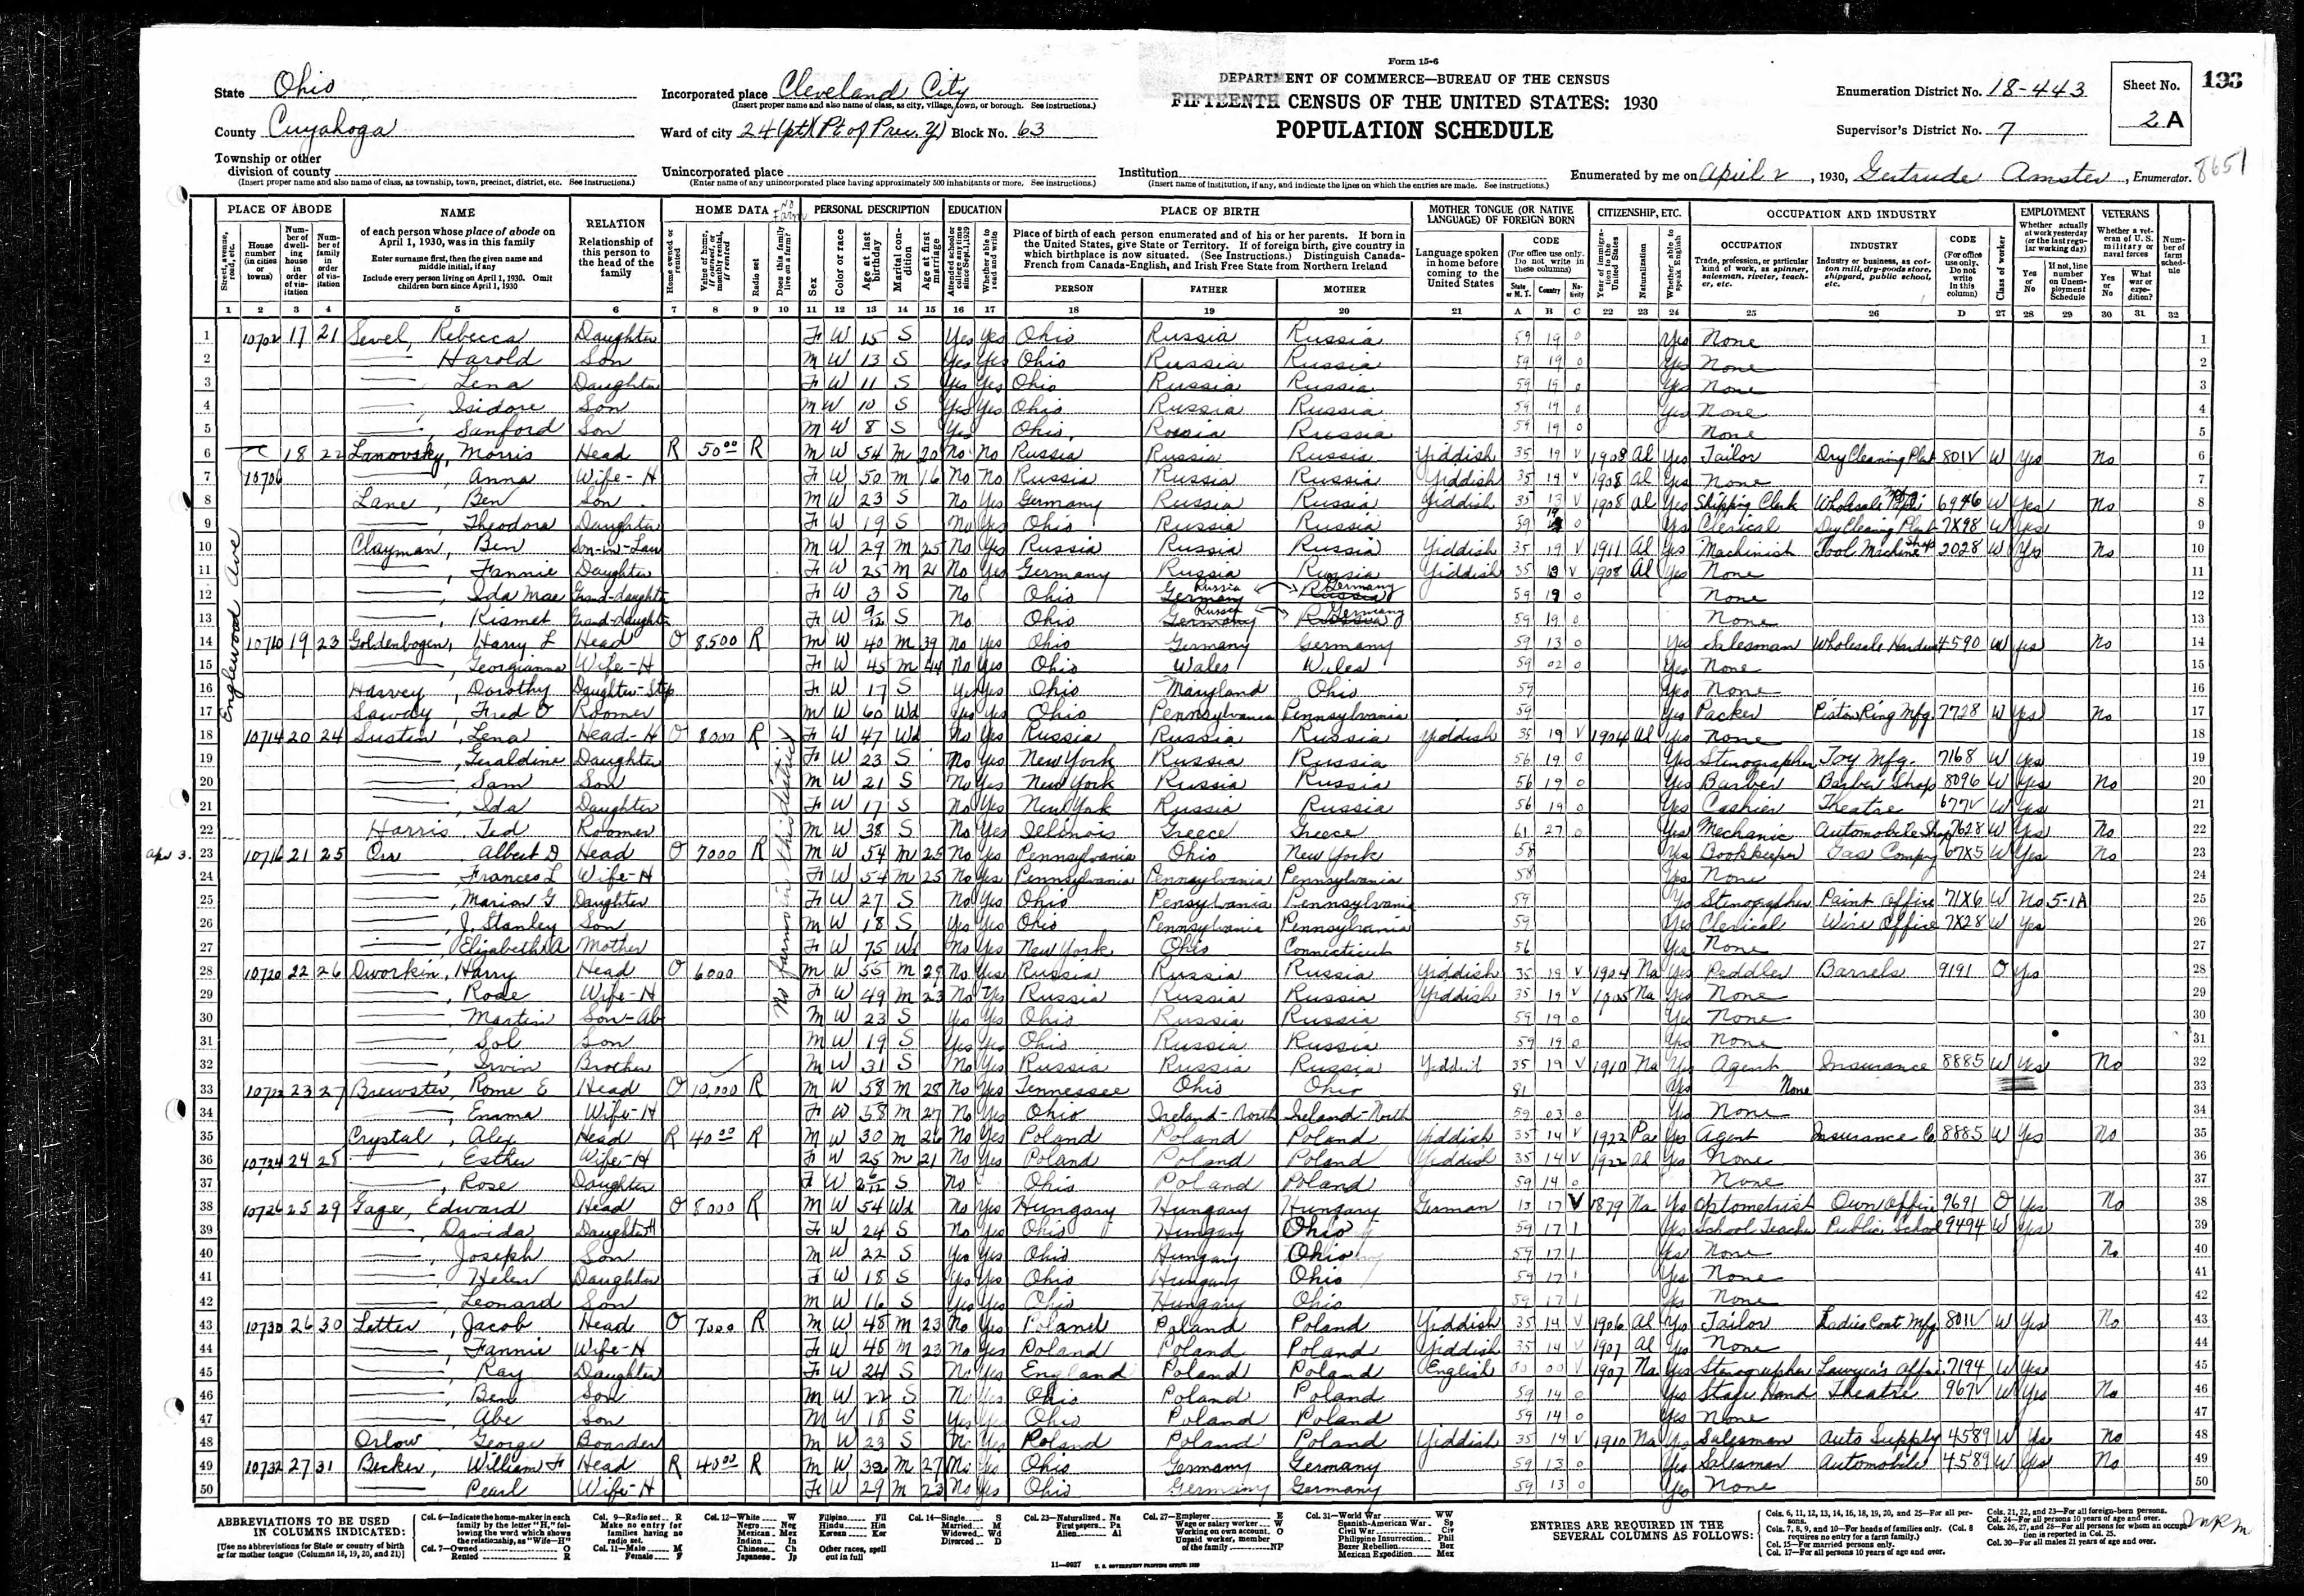 Form 15-6
DEPARTMENT OF COMMERCE—BUREAU OF THE CENSUS
FIFTEENTH CENSUS OF THE UNITED STATES: 1930
POPULATION SCHEDULE
State Ohio
County Cuyahoga
Township or other division of county
(Insert proper name and also name of class, as township, town, precinct, district, etc. See instructions.)
Incorporated place Cleveland City
(Insert proper name and also name of class, as city, village, town, or borough. See instructions.)
Ward of city 24 (pt) (Pt of Prec. Y) Block No. 63
Unincorporated place
(Enter name of any unincorporated place having approximately 500 inhabitants or more. See instructions.)
Institution
(Insert name of institution, if any, and indicate the lines on which the entries are made. See instructions.)
Enumeration District No. 18-443
Supervisor's District No. 7
Sheet No. 2 A
193
Enumerated by me on April 2, 1930, Gertrude Amster, Enumerator. 8651
PLACE OF ABODE | NAME | RELATION | HOME DATA | PERSONAL DESCRIPTION | EDUCATION | PLACE OF BIRTH | MOTHER TONGUE (OR NATIVE LANGUAGE) OF FOREIGN BORN | CITIZENSHIP, ETC. | OCCUPATION AND INDUSTRY | EMPLOYMENT | VETERANS
Englewood Ave
No farms in this district
1 10702 17 21 Sevel, Rebecca Daughter F W 15 S Yes Yes Ohio Russia Russia 59 19 0 Yes None
2 — Harold Son M W 13 S Yes Yes Ohio Russia Russia 59 19 0 Yes None
3 — Lena Daughter F W 11 S Yes Yes Ohio Russia Russia 59 19 0 Yes None
4 —, Isidore Son M W 10 S Yes Yes Ohio Russia Russia 59 19 0 Yes None
5 — Sanford Son M W 8 S Yes Ohio Russia Russia 59 19 0 None
6 18 22 Lanovsky, Morris Head R 50 00 R M W 54 M 20 No No Russia Russia Russia Yiddish 35 19 V 1908 Al Yes Tailor Dry Cleaning Plant 801V W Yes No
7 10706 —, Anna Wife-H F W 50 M 16 No No Russia Russia Russia Yiddish 35 19 V 1908 Al Yes None
8 Lane, Ben Son M W 23 S No Yes Germany Russia Russia Yiddish 35 13 V 1908 Al Yes Shipping Clerk Wholesale 6946 W Yes No
9 —, Theodora Daughter F W 19 S No Yes Ohio Russia Russia 59 19 0 Yes Clerical Dry Cleaning Plant 7X98 W Yes
10 Clayman, Ben Son-in-Law M W 29 M 25 No Yes Russia Russia Russia Yiddish 35 19 V 1911 Al Yes Machinist Tool Machine Shop 2028 W Yes No
11 —, Fannie Daughter F W 25 M 21 No Yes Germany Russia Russia Yiddish 35 13 V 1908 Al Yes None
12 —, Ida Mae Grand-daughter F W 3 S No Ohio Germany Russia Russia Germany 59 19 0 None
13 —, Kismet Grand-daughter F W 9/12 S No Ohio Germany Russia Russia Germany 59 19 0 None
14 10710 19 23 Goldenbogen, Harry L Head O 8500 R M W 40 M 39 No Yes Ohio Germany Germany 59 13 0 Yes Salesman Wholesale Hardware 4590 W Yes No
15 —, Georgianna Wife-H F W 45 M 44 No Yes Ohio Wales Wales 59 02 0 Yes None
16 Harvey, Dorothy Daughter-Step F W 17 S Yes Yes Ohio Maryland Ohio 59 Yes None
17 Sawdy, Fred O Roomer M W 60 Wd Yes Yes Ohio Pennsylvania Pennsylvania 59 Yes Packer Piston Ring Mfg. 7728 W Yes No
18 10714 20 24 Sustin, Lena Head-H O 8000 R F W 47 Wd No Yes Russia Russia Russia Yiddish 35 19 V 1904 Al Yes None
19 —, Geraldine Daughter F W 23 S No Yes New York Russia Russia 56 19 0 Yes Stenographer Toy Mfg. 7168 W Yes
20 — Sam Son M W 21 S No Yes New York Russia Russia 56 19 0 Yes Barber Barber Shop 8096 W Yes No
21 —, Ida Daughter F W 17 S No Yes New York Russia Russia 56 19 0 Yes Cashier Theatre 677V W Yes
22 Harris, Ted Roomer M W 38 S No Yes Illinois Greece Greece 61 27 0 Yes Mechanic Automobile Shop 7628 W Yes No
Apr 3. 23 10716 21 25 Orr Albert D Head O 7000 R M W 54 M 25 No Yes Pennsylvania Ohio New York 58 Yes Bookkeeper Gas Company 67X5 W Yes No
24 —, Frances L Wife-H F W 54 M 25 No Yes Pennsylvania Pennsylvania Pennsylvania 58 Yes None
25 —, Marion G Daughter F W 27 S No Yes Ohio Pensylvania Pennsylvania 59 Yes Stenographer Paint Office 71X6 W No 5-1A
26 —, J. Stanley Son M W 18 S Yes Yes Ohio Pennsylvania Pennsylvania 59 Yes Clerical Wire Office 7X28 W Yes
27 —, Elizabeth A Mother F W 75 Wd No Yes New York Ohio Connecticut 56 Yes None
28 10720 22 26 Dworkin, Harry Head O 6000 M W 55 M 29 No Yes Russia Russia Russia Yiddish 35 19 V 1904 Na Yes Peddler Barrels 9191 O Yes
29 —, Rose Wife-H F W 49 M 23 No Yes Russia Russia Russia Yiddish 35 19 V 1905 Na Yes None
30 —, Martin Son-Ab M W 23 S Yes Yes Ohio Russia Russia 59 19 0 Yes None
31 —, Sol Son M W 19 S Yes Yes Ohio Russia Russia 59 19 0 Yes None
32 —, Irvin Brother M W 31 S No Yes Russia Russia Russia Yiddish 35 19 V 1910 Na Yes Agent Insurance 8885 W Yes No
33 10722 23 27 Brewster, Rome E Head O 10,000 R M W 58 M 28 No Yes Tennessee Ohio Ohio 81 Yes None
34 —, Emma Wife-H F W 58 M 27 No Yes Ohio Ireland-North Ireland-North 59 03 0 Yes None
35 Crystal, Alex Head R 40 00 R M W 30 M 26 No Yes Poland Poland Poland Yiddish 35 14 V 1922 Pa Yes Agent Insurance Co 8885 W Yes No
36 10724 24 28 —, Esther Wife-H F W 25 M 21 No Yes Poland Poland Poland Yiddish 35 14 V 1922 Al Yes None
37 —, Rose Daughter F W 2 S No Ohio Poland Poland 59 14 0 None
38 10726 25 29 Gage, Edward Head O 8000 R M W 54 Wd No Yes Hungary Hungary Hungary German 13 17 V 1879 Na Yes Optometrist Own Office 9691 O Yes No
39 —, Davida Daughter H F W 24 S No Yes Ohio Hungary Ohio 59 17 1 Yes School Teacher Public School 9494 W Yes
40 —, Joseph Son M W 22 S Yes Yes Ohio Hungary Ohio 59 17 1 Yes None No
41 —, Helen Daughter F W 18 S Yes Yes Ohio Hungary Ohio 59 17 1 Yes None
42 —, Leonard Son M W 16 S Yes Yes Ohio Hungary Ohio 59 17 1 Yes None
43 10730 26 30 Letter, Jacob Head O 7000 R M W 48 M 23 No Yes Poland Poland Poland Yiddish 35 14 V 1906 Al Yes Tailor Ladies Coat Mfg. 801V W Yes No
44 —, Fannie Wife-H F W 48 M 23 No Yes Poland Poland Poland Yiddish 35 14 V 1907 Al Yes None
45 —, Ray Daughter F W 24 S No Yes England Poland Poland English 00 00 V 1907 Na Yes Stenographer Lawyer's Office 7194 W Yes
46 —, Ben Son M W 22 S No Yes Ohio Poland Poland 59 14 0 Yes Stage Hand Theatre 967V W Yes No
47 —, Abe Son M W 18 S Yes Yes Ohio Poland Poland 59 14 0 Yes None
48 Orlow George Boarder M W 23 S No Yes Poland Poland Poland Yiddish 35 14 V 1910 Na Yes Salesman Auto Supply 4589 W Yes No
49 10732 27 31 Becker, William F Head R 40 00 R M W 32 M 27 No Yes Ohio Germany Germany 59 13 0 Yes Salesman Automobile 4589 W Yes No
50 — Pearl Wife-H F W 29 M 23 No Yes Ohio Germany Germany 59 13 0 Yes None
ABBREVIATIONS TO BE USED IN COLUMNS INDICATED:
[Use no abbreviations for State or country of birth or for mother tongue (Columns 18, 19, 20, and 21)]
Col. 6—Indicate the home-maker in each family by the letter "H," following the word which shows the relationship, as "Wife—H"
Col. 7—Owned O Rented R
Col. 9—Radio set R Make no entry for families having no radio set.
Col. 11—Male M Female F
Col. 12—White W Negro Neg Mexican Mex Indian In Chinese Ch Japanese Jp Filipino Fil Hindu Hin Korean Kor Other races, spell out in full
Col. 14—Single S Married M Widowed Wd Divorced D
Col. 23—Naturalized Na First papers Pa Alien Al
Col. 27—Employer E Wage or salary worker W Working on own account O Unpaid worker, member of the family NP
Col. 31—World War WW Spanish-American War Sp Civil War Civ Philippine Insurrection Phil Boxer Rebellion Box Mexican Expedition Mex
ENTRIES ARE REQUIRED IN THE SEVERAL COLUMNS AS FOLLOWS:
Cols. 6, 11, 12, 13, 14, 16, 18, 19, 20, and 25—For all persons.
Cols. 7, 8, 9, and 10—For heads of families only. (Col. 8 requires no entry for a farm family.)
Col. 15—For married persons only.
Col. 17—For all persons 10 years of age and over.
Cols. 21, 22, and 23—For all foreign-born persons.
Col. 24—For all persons 10 years of age and over.
Cols. 26, 27, and 28—For all persons for whom an occupation is reported in Col. 25.
Col. 30—For all males 21 years of age and over.
11—9827 U. S. GOVERNMENT PRINTING OFFICE: 1929